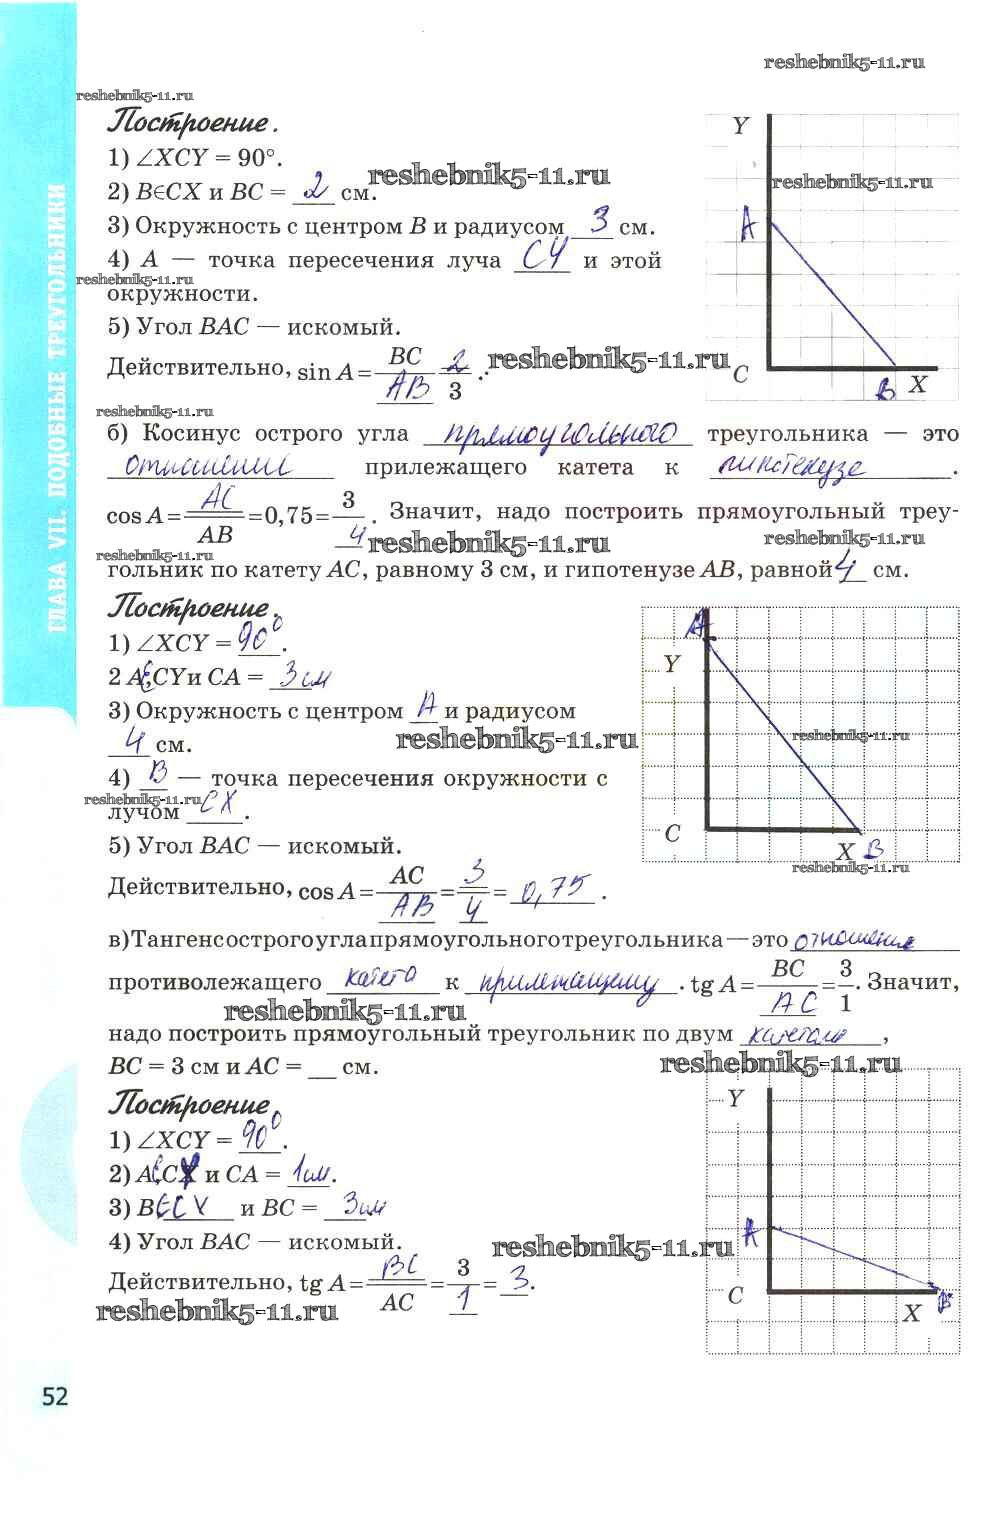 reshebnik5-11.ru
reshebnik5-11.ru
ГЛАВА VII. ПОДОБНЫЕ ТРЕУГОЛЬНИКИ
Построение.
1) ∠XCY = 90°.
reshebnik5-11.ru
2) B∈CX и BC = 2 см.
3) Окружность с центром B и радиусом 3 см.
4) A — точка пересечения луча CY и этой
reshebnik5-11.ru
окружности.
5) Угол BAC — искомый.
Действительно, sin A = BC/AB 2/3.
reshebnik5-11.ru
Y
reshebnik5-11.ru
A
C
B
X
reshebnik5-11.ru
б) Косинус острого угла прямоугольного треугольника — это
отношение прилежащего катета к гипотенузе.
cos A = AC/AB = 0,75 = 3/4. Значит, надо построить прямоугольный треу-
reshebnik5-11.ru
reshebnik5-11.ru
reshebnik5-11.ru
гольник по катету AC, равному 3 см, и гипотенузе AB, равной 4 см.
Построение.
1) ∠XCY = 90°.
2 A∈CY и CA = 3 см
3) Окружность с центром A и радиусом
4 см.
reshebnik5-11.ru
4) B — точка пересечения окружности с
reshebnik5-11.ru
лучом CX.
5) Угол BAC — искомый.
Действительно, cos A = AC/AB = 3/4 = 0,75.
A
Y
reshebnik5-11.ru
C
X
B
reshebnik5-11.ru
в) Тангенс острого угла прямоугольного треугольника — это отношение
противолежащего катета к прилежащему. tg A = BC/AC = 3/1. Значит,
reshebnik5-11.ru
надо построить прямоугольный треугольник по двум катетам,
BC = 3 см и AC = __ см.
reshebnik5-11.ru
Построение.
1) ∠XCY = 90°.
2) A∈CY и CA = 1 см.
3) B∈CX и BC = 3 см
4) Угол BAC — искомый.
reshebnik5-11.ru
Действительно, tg A = BC/AC = 3/1 = 3.
reshebnik5-11.ru
Y
A
C
B
X
52